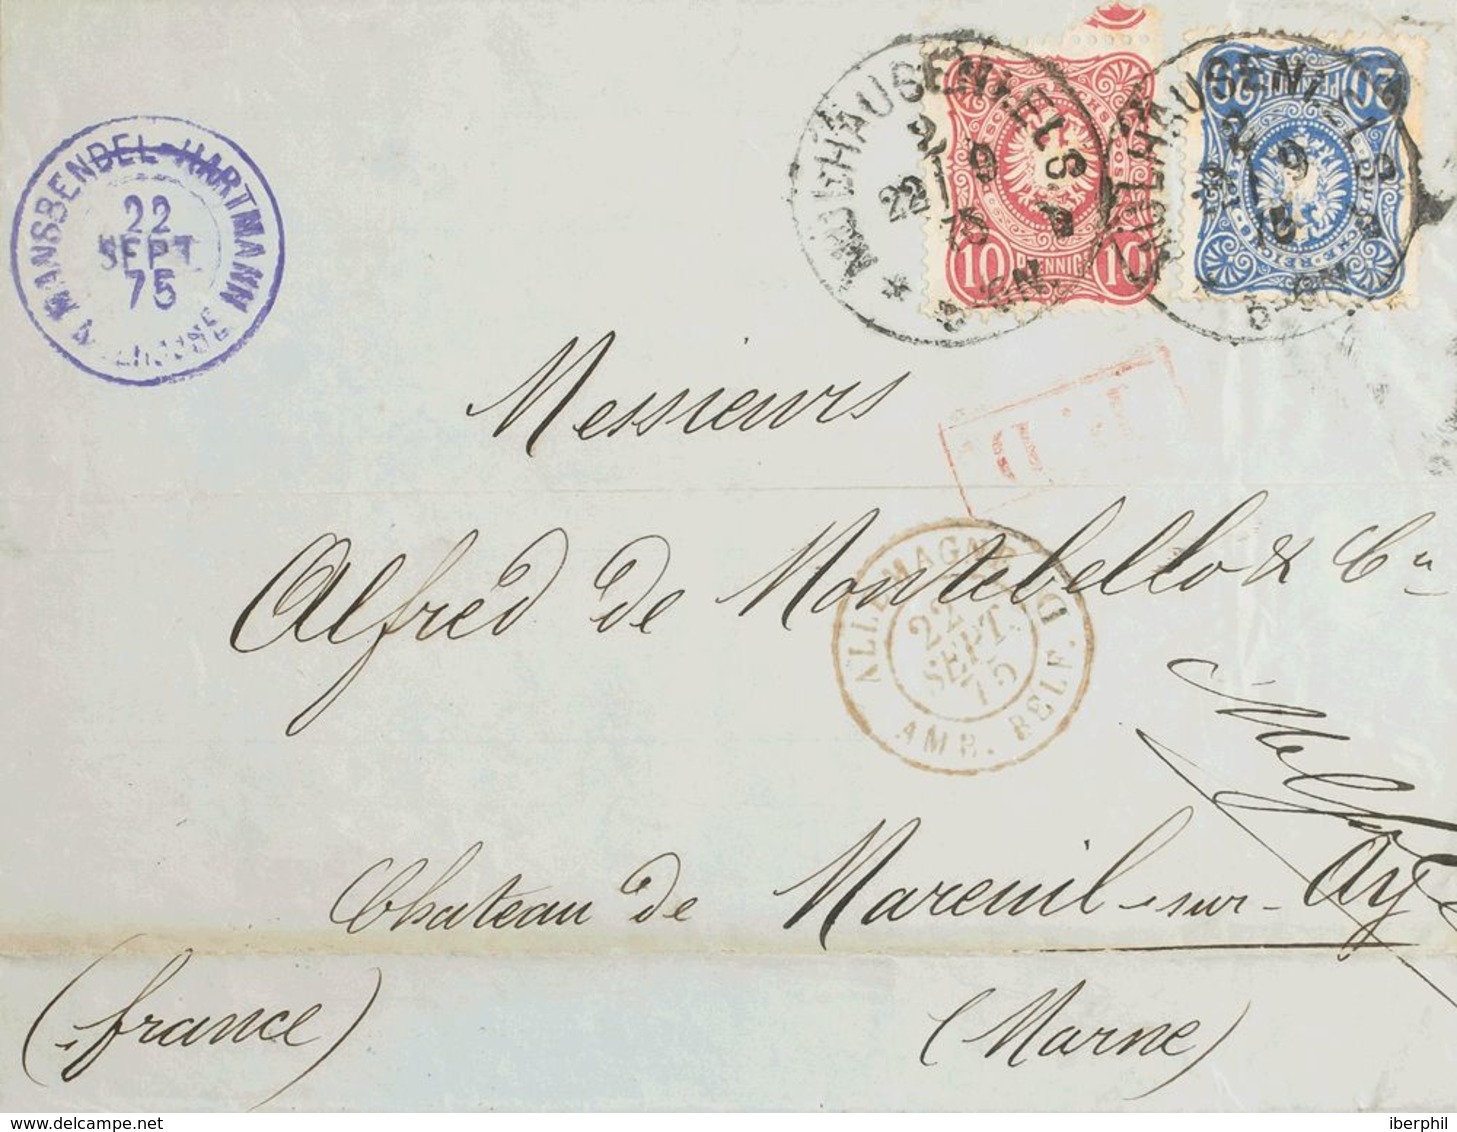 MANSBENDEL-HARTMANN
22
SEPT
75
MULHAUSEN I. ELS.
22 9
75
5-6N.
10 PFENNIG 10
MULHAUSEN I. ELS.
22 9
75
5-6N.
20 PFENNIGE 20
P.D.
Messieurs
Alfred de Montebello & Cie
ALLEMAGNE
22
SEPT.
75
AMB. BELF. D
Chateau de Mareuil-sur-Ay
(france) (Marne)
www.delcampe.net
iberphil